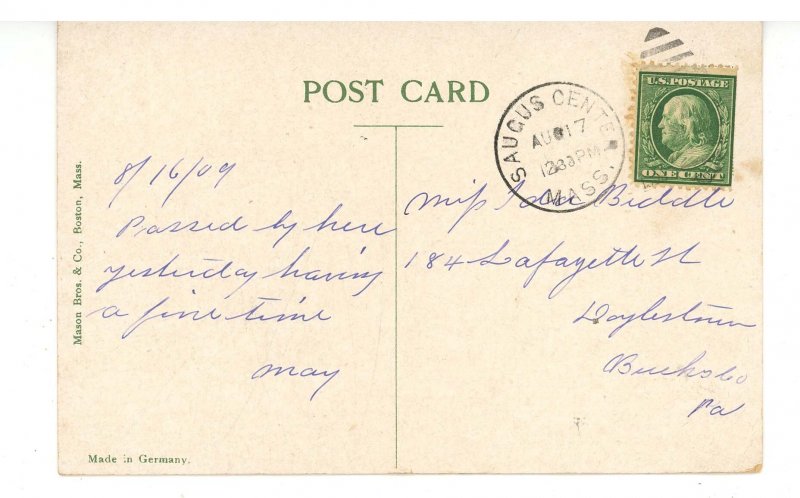 POST CARD
SAUGUS CENTER
AUG 17
12 30 PM
MASS.
U.S. POSTAGE
ONE CENT
8/16/09
Passed by here
yesterday having
a fine time
May
Miss Ida Biddle
184 Lafayette St
Doylestown
Bucks Co
Pa
Mason Bros. & Co., Boston, Mass.
Made in Germany.